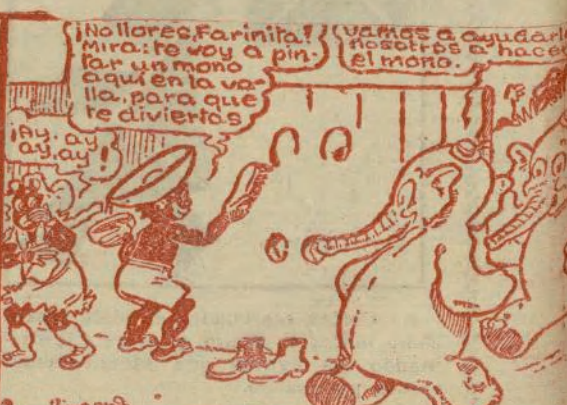 ¡No llores, Farinita!
Mira: te voy a pin-
tar un mono
aquí en la va-
lla, para que
te diviertas
vamos a ayudarle
nosotros a hacer
el mono.
¡Ay, ay
ay, ay!